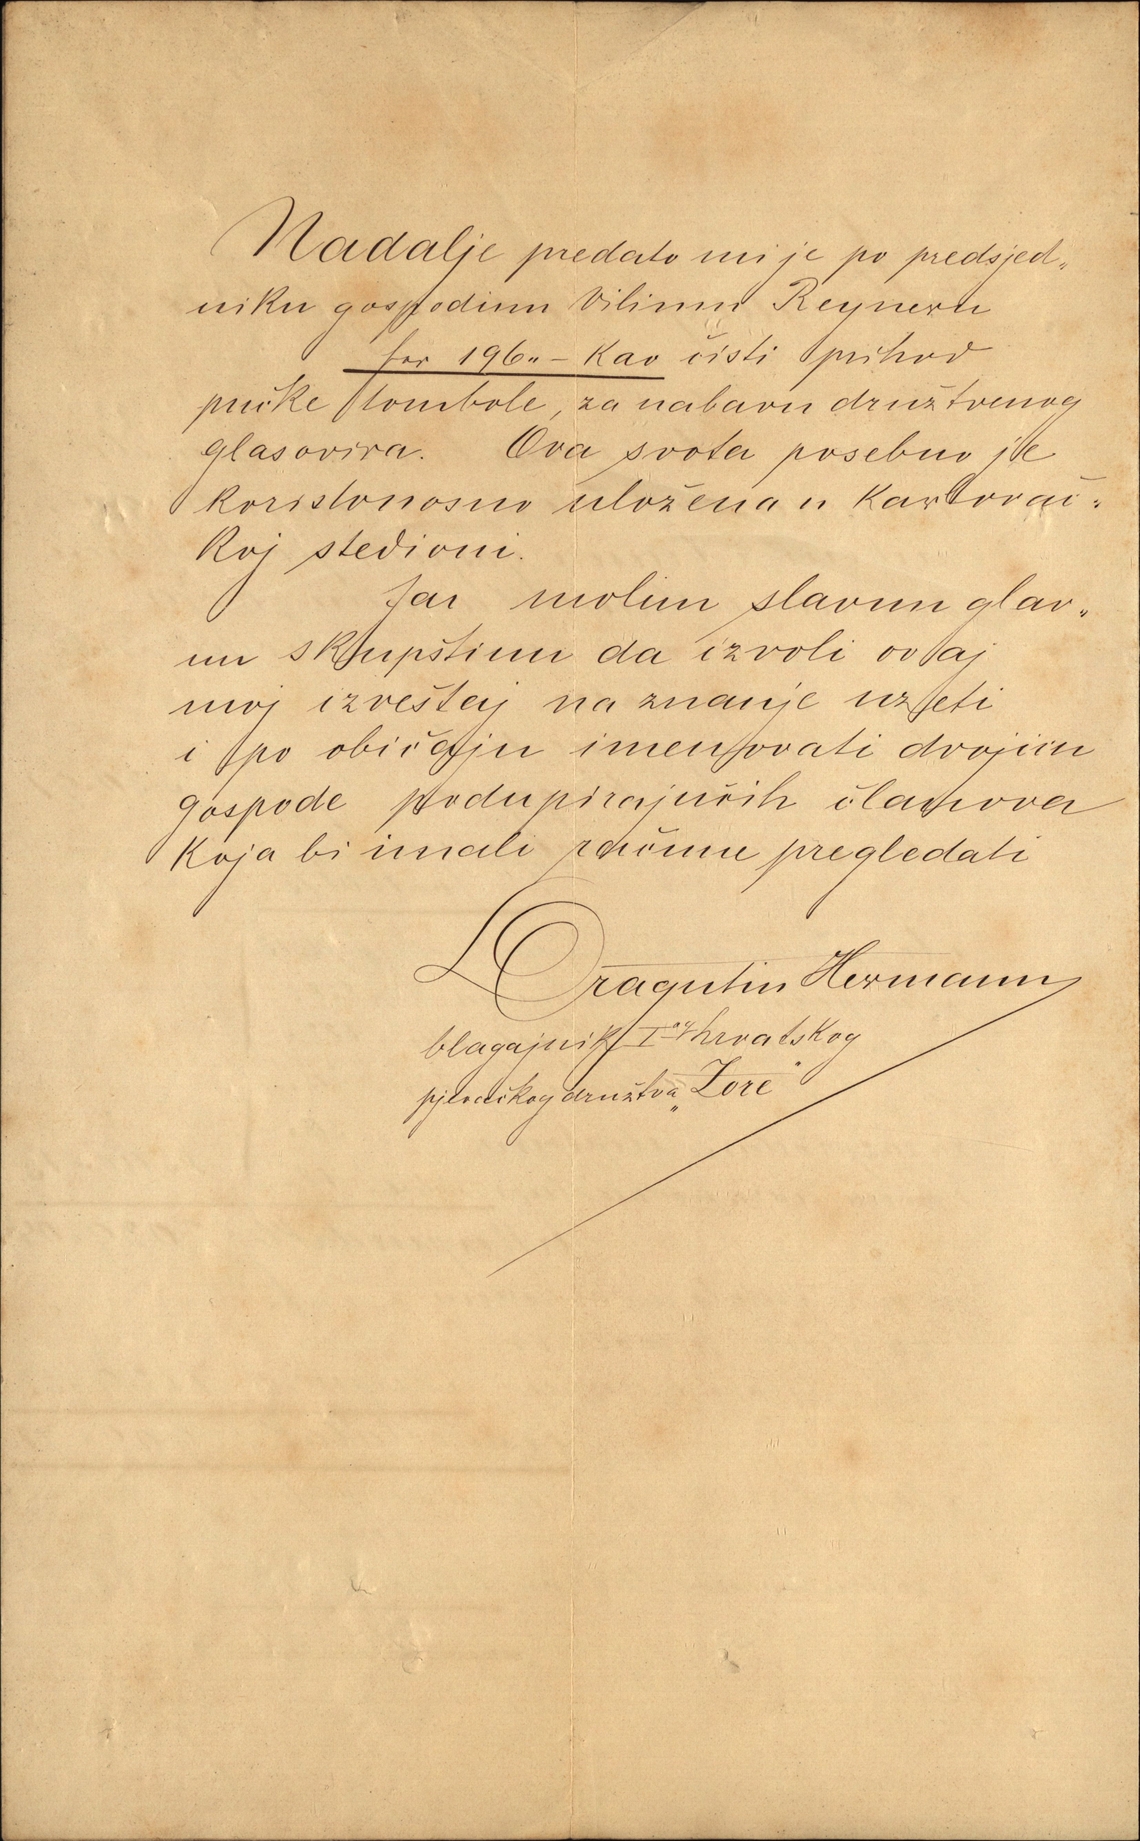 Nadalje predato mi je po predsjed„
niku gospodinu Vilimu Reyneru
for 196„– kao čisti prihod
pučke tombole, za nabavu družtvenog
glasovira. Ova svota posebno je
koristonosno uložena u Karlovač„
koj štedioni.
Ja molim slavnu glav„
nu skupštinu da izvoli ovaj
moj izveštaj na znanje uzeti
i po običaju imenovati dvojicu
gospode podupirajućih članova
koja bi imali račune pregledati
Dragutin Hermann
blagajnik I og hrvatskog
pjevačkog družtva „Zore"